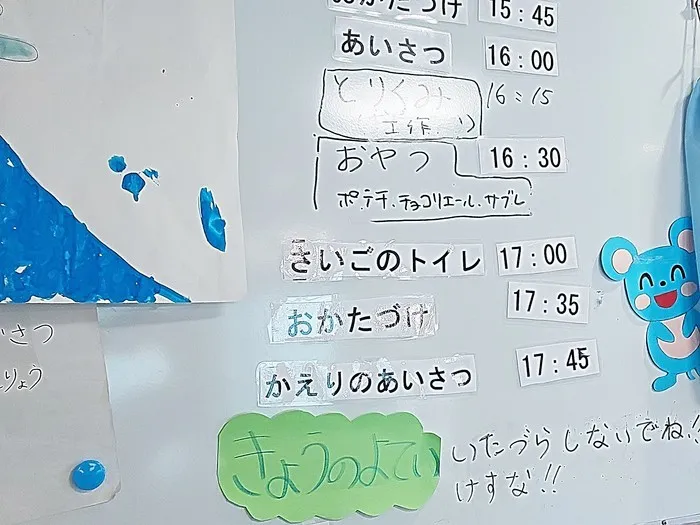 おかたづけ 15:45
あいさつ 16:00
とりくみ 16:15
(工作)
おやつ 16:30
ポテチ.チョコリエール.サブレ
さいごのトイレ 17:00
おかたづけ 17:35
かえりのあいさつ 17:45
きょうのよてい
いたづらしないでね!!
けすな!!
さつ
りょう